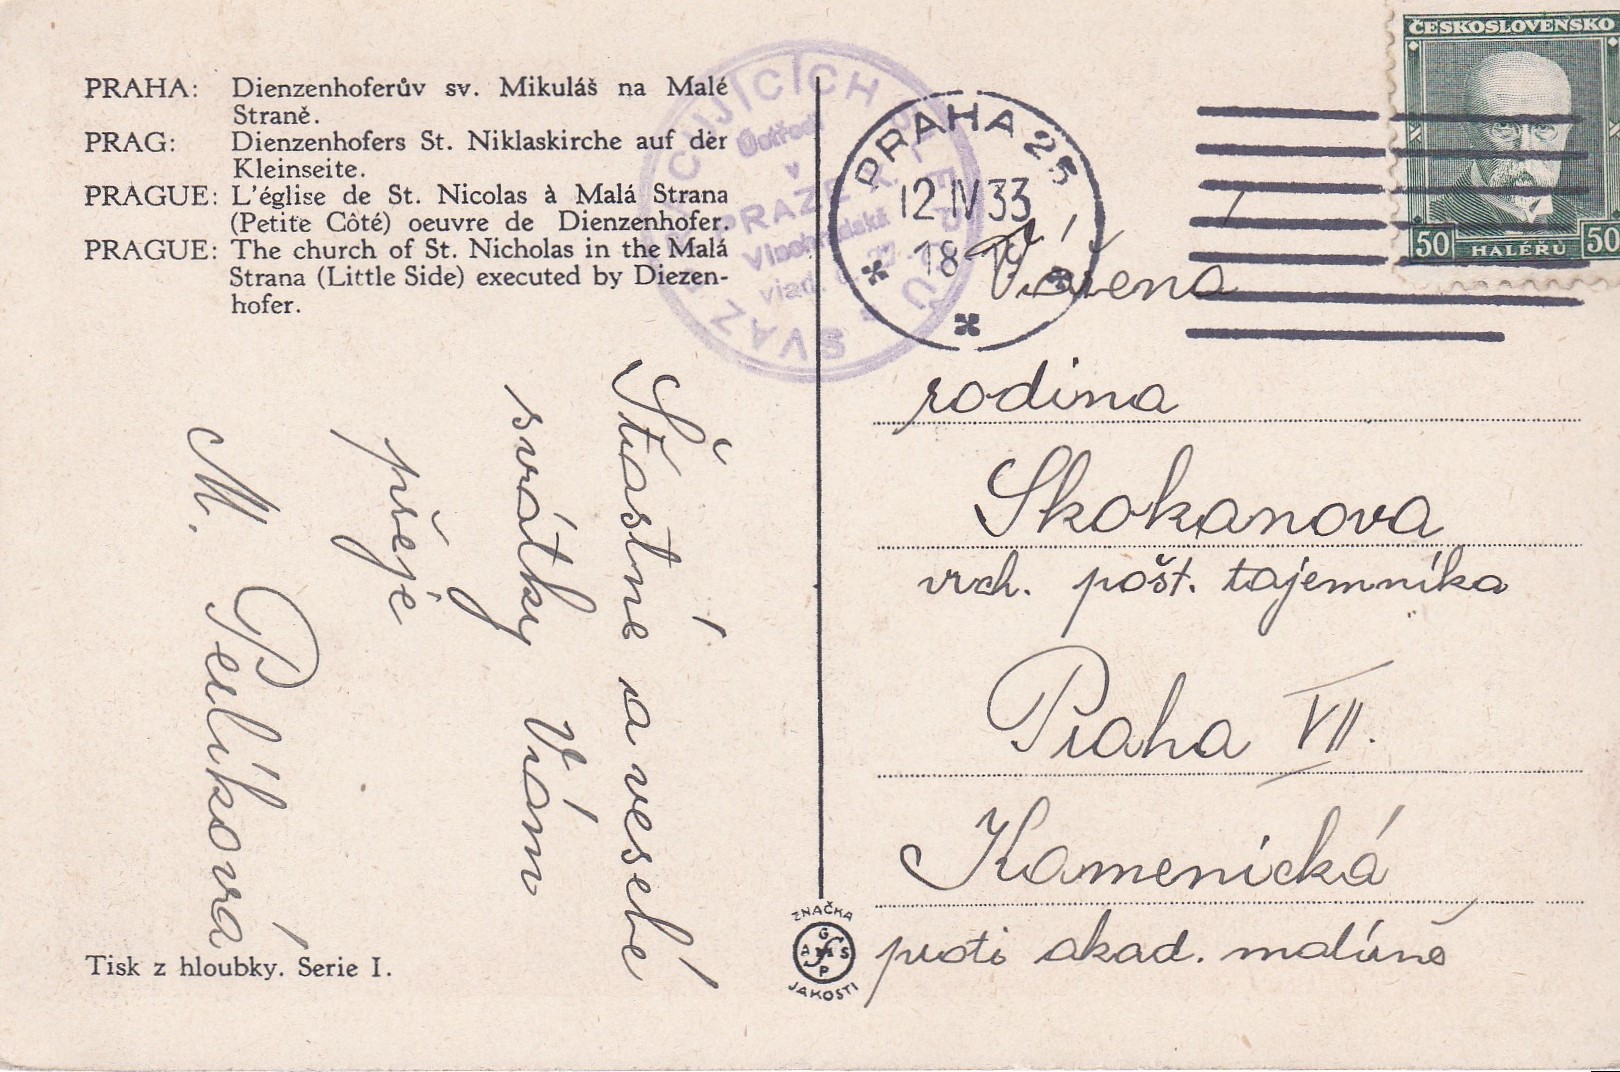 PRAHA: Dienzenhoferův sv. Mikuláš na Malé
Straně.
PRAG: Dienzenhofers St. Niklaskirche auf der
Kleinseite.
PRAGUE: L'église de St. Nicolas à Malá Strana
(Petite Côté) oeuvre de Dienzenhofer.
PRAGUE: The church of St. Nicholas in the Malá
Strana (Little Side) executed by Diezen-
hofer.
SVAZ
PRAZE
PRAHA 25
12 IV 33
18
ČESKOSLOVENSKO
50 HALÉŘŮ 50
Šťastné a veselé
svátky Vám
přeje
M. Peliková
Vážená
rodina
Skokanova
vrch. pošt. tajemníka
Praha VII.
Kamenická
proti akad. malírně
Tisk z hloubky. Serie I.
ZNAČKA
JAKOSTI